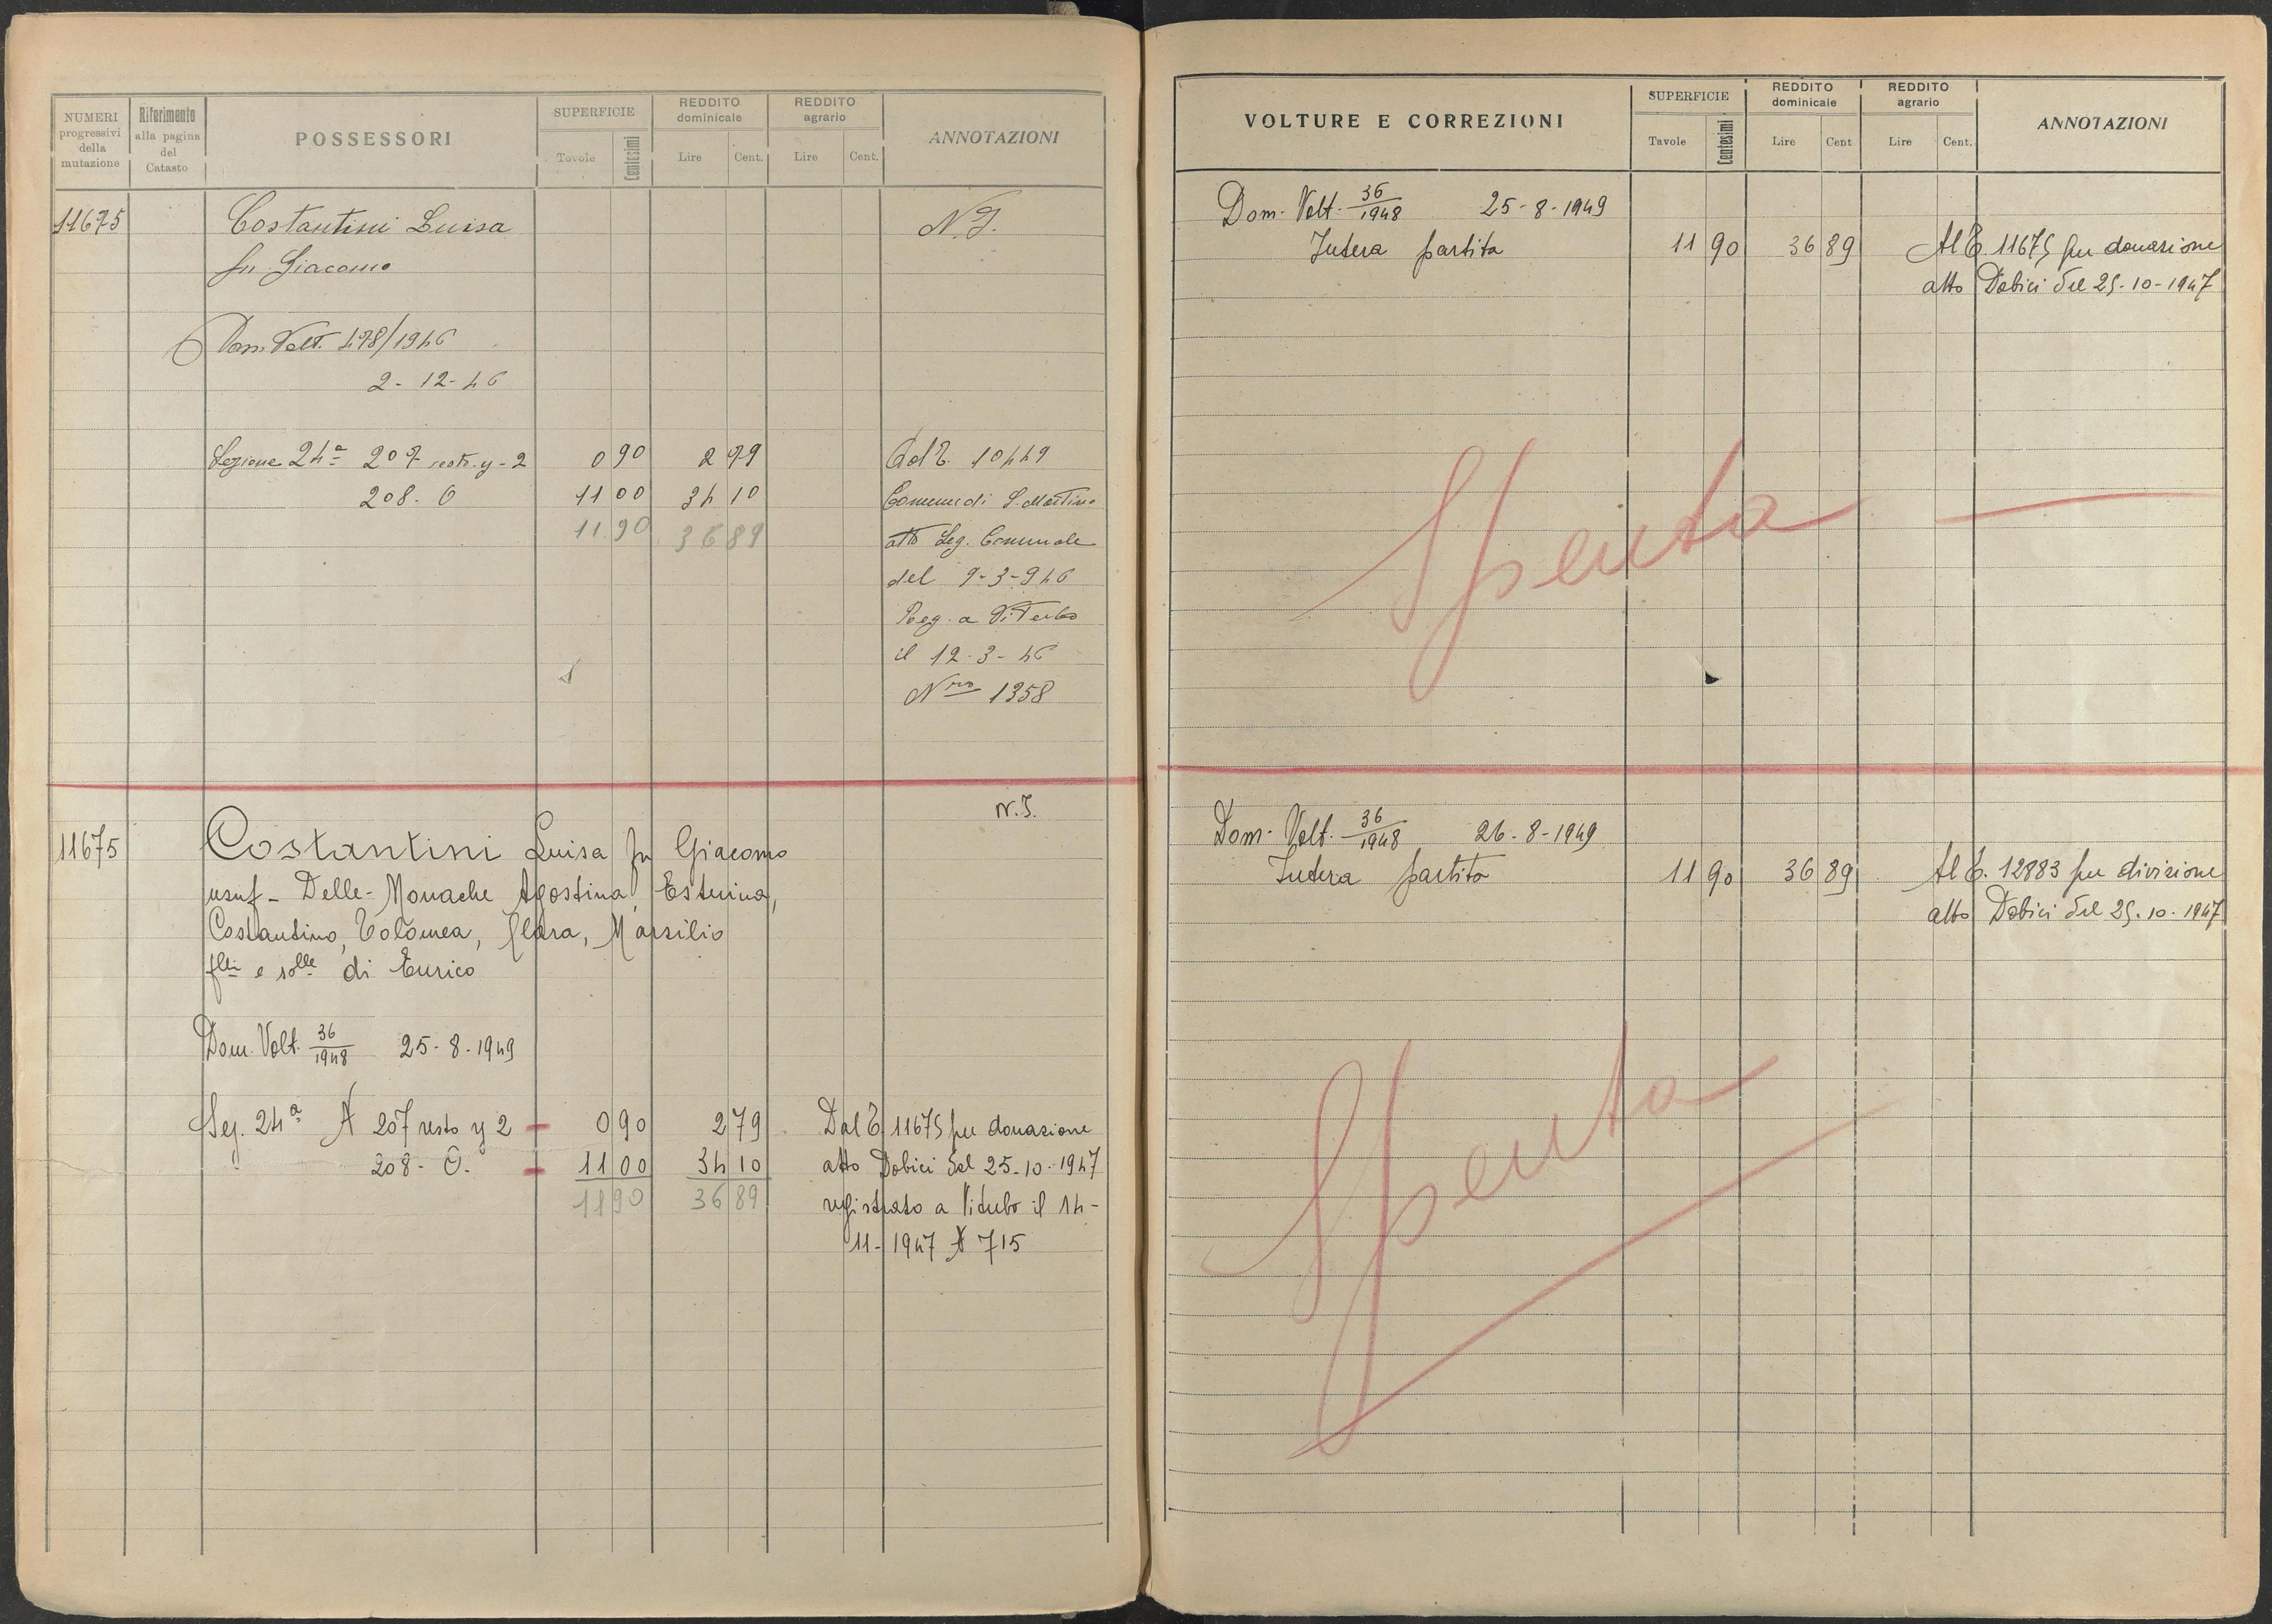 NUMERI progressivi della mutazione
Riferimento alla pagina del Catasto
POSSESSORI
SUPERFICIE
Tavole
Centesimi
REDDITO dominicale
Lire
Cent.
REDDITO agrario
Lire
Cent.
ANNOTAZIONI
11675
Costantini Luisa
N.I.
fu Giacomo
Dom. Volt. 478/1946
2-12-46
Sezione 24ª 207 resto y-2 0 90 2 79 Dal T. 10449
208. O 11 00 34 10 Comune di S. Martino
11.90 36 89 atto Seg. Comunale
del 9-3-946
Reg. a Viterbo
il 12-3-46
Nro 1358
N.I.
11675 Costantini Luisa fu Giacomo
usuf - Delle-Monache Agostina, Esterina,
Costantino, Tolomea, Clara, Marsilio
flli e slle di Enrico
Dom. Volt. 36/1948 25-8-1949
Sez. 24ª N 207 resto y 2 - 0 90 2 79 Dal T. 11675 per donazione
208 - O. - 11 00 34 10 atto Dobici del 25-10-1947
11 90 36 89 registrato a Viterbo il 14-
11-1947 N 715
VOLTURE E CORREZIONI
SUPERFICIE
Tavole
Centesimi
REDDITO dominicale
Lire
Cent
REDDITO agrario
Lire
Cent.
ANNOTAZIONI
Dom. Volt. 36/1948 25-8-1949
Intera partita 11 90 36 89 Al T. 11675 per donazione
atto Dobici del 25-10-1947
Spenta
Dom. Volt. 36/1948 26-8-1949
Intera partita 11 90 36 89 Al T. 12883 per divisione
atto Dobici del 25.10.1947
Spenta